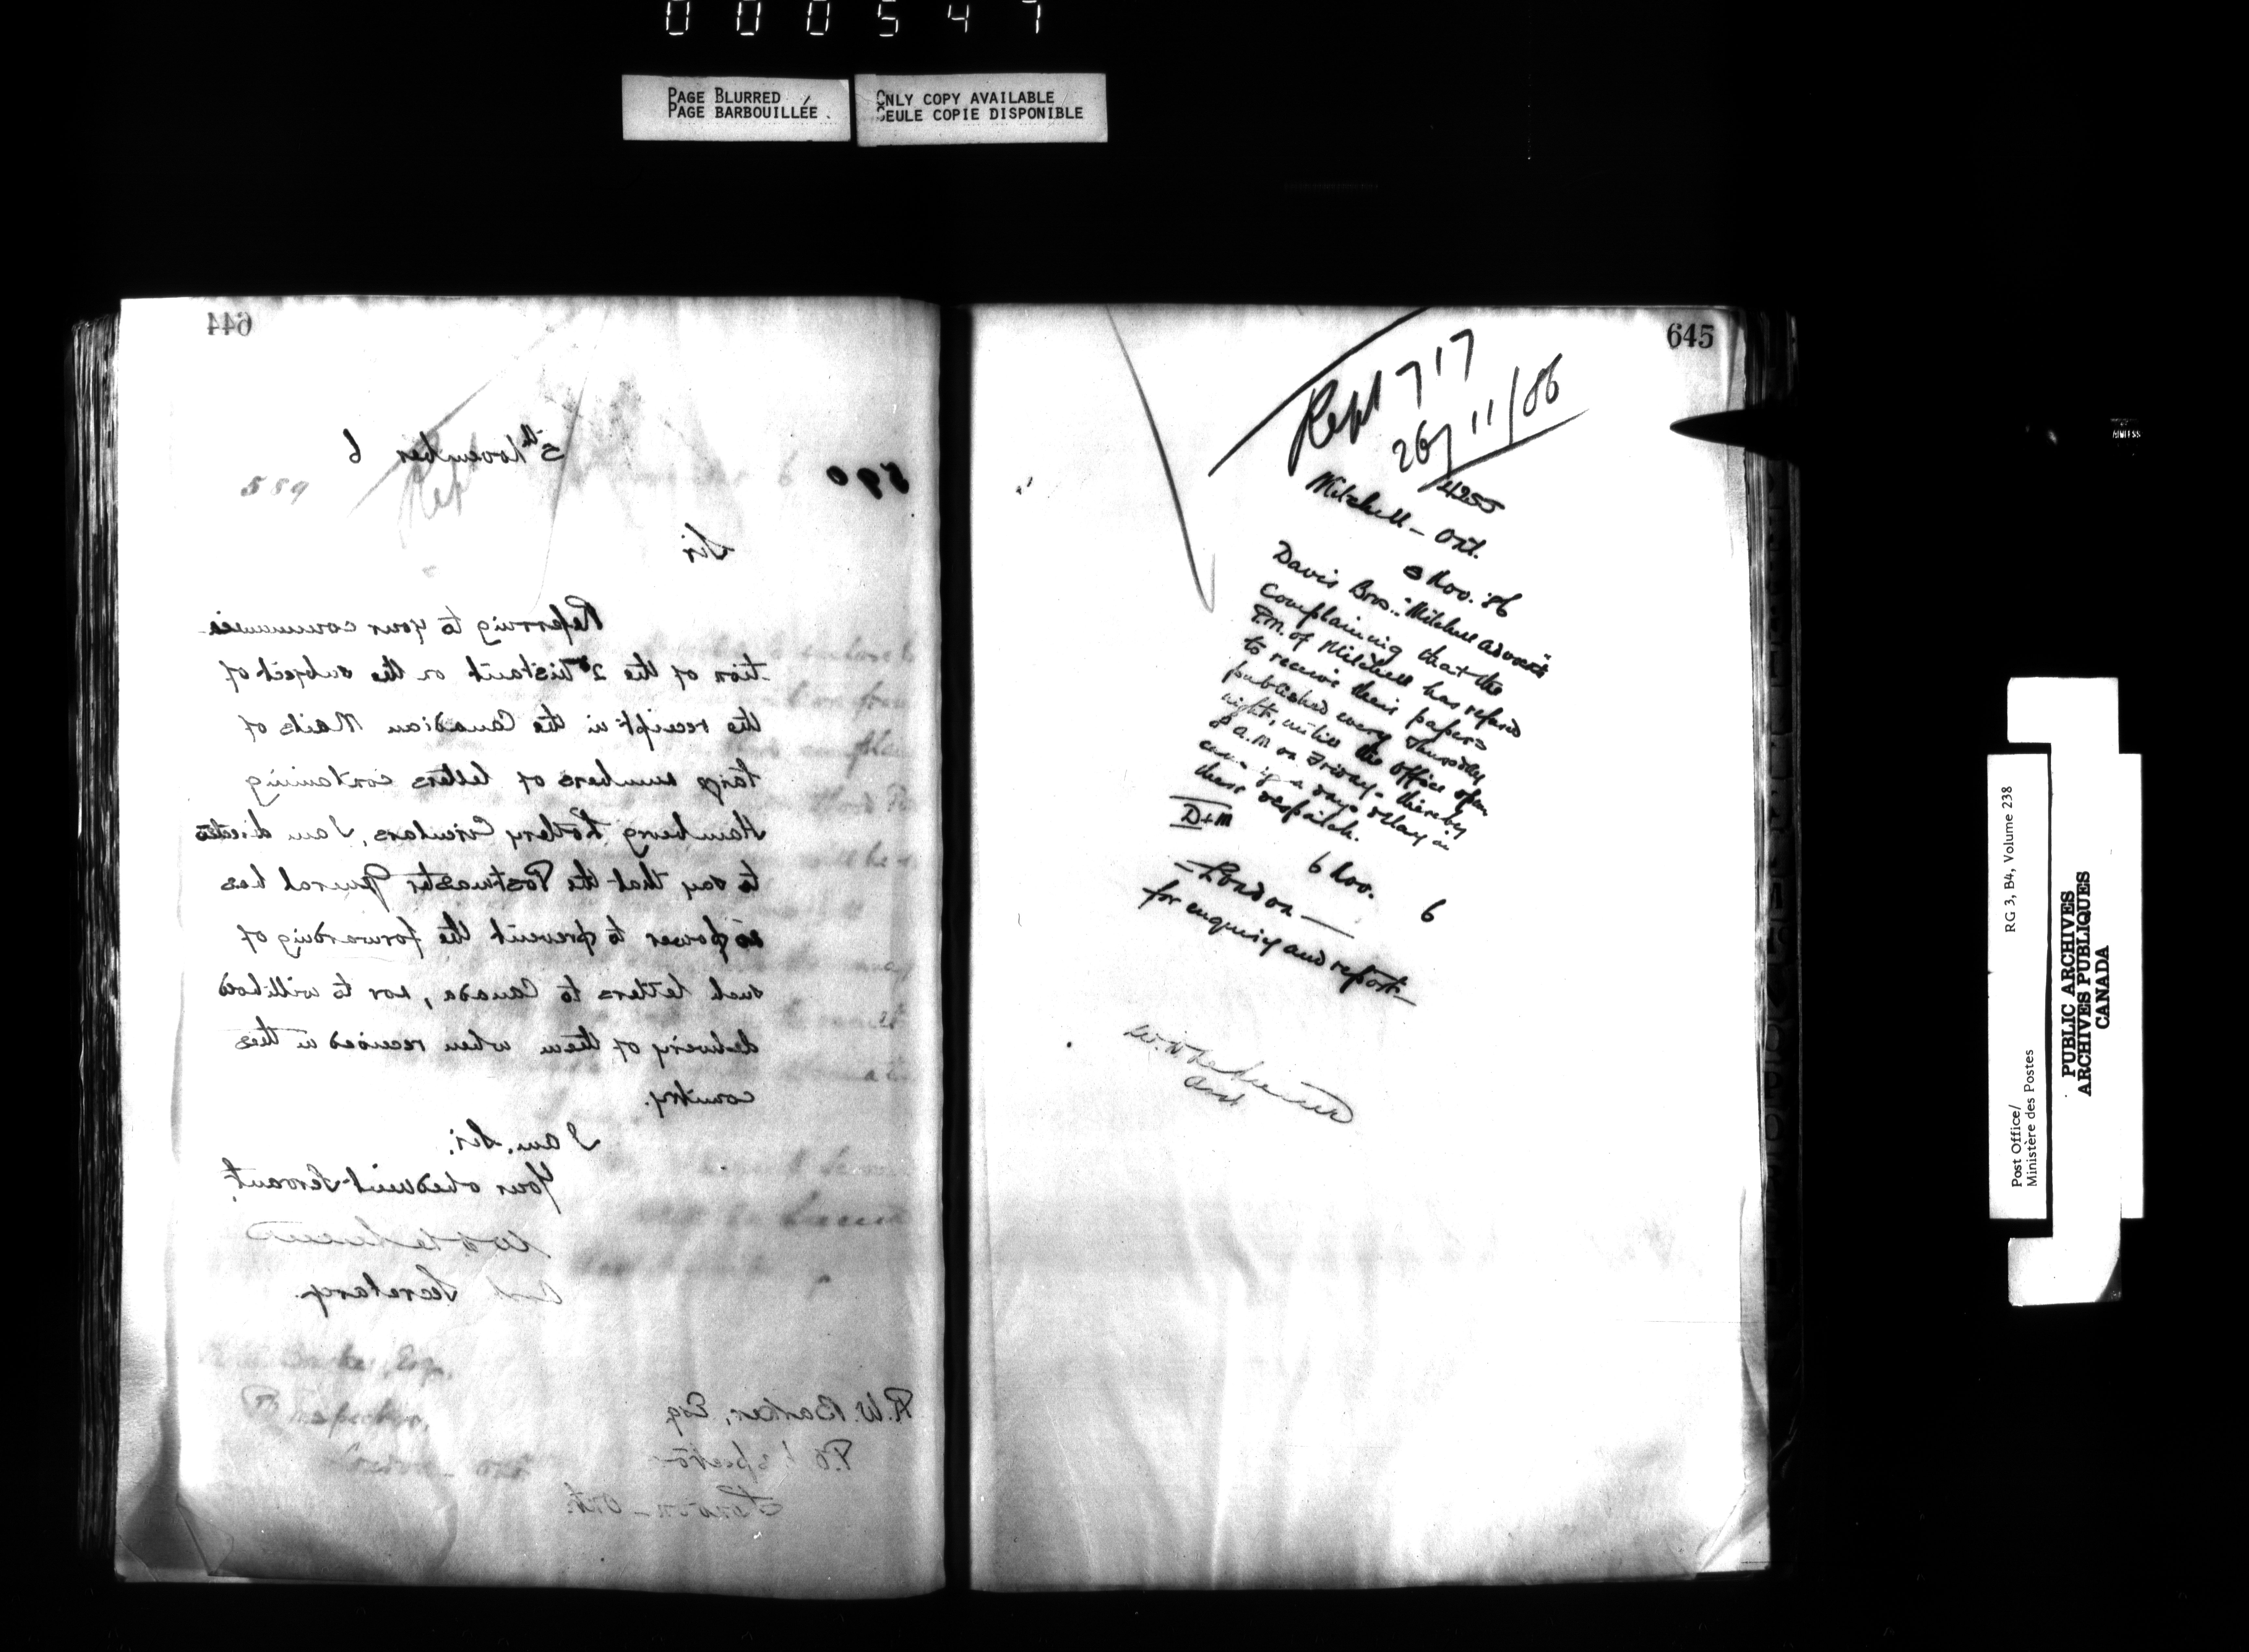 000547
PAGE BLURRED
PAGE BARBOUILLÉE.
ONLY COPY AVAILABLE
SEULE COPIE DISPONIBLE
644
5th November 6
589
Rept
590
Sir
Referring to your communica-
tion of the 2nd instant on the subject of
the receipt in the Canadian Mails of
large numbers of letters containing
Hamburg Lottery Circulars, I am directed
to say that the Postmaster General has
no power to prevent the forwarding of
such letters to Canada, nor to withhold
delivery of them when received in this
country.
I am, Sir,
Your obedient Servant,
Secretary.
R. W. Barker, Esq
P.O. Inspector
London - Ont.
645
Rept 717
26/11/86
4255
Mitchell - Ont.
3 Nov. 86
Davis Bros. "Mitchell Advocate"
Complaining that the
P.M. of Mitchell has refused
to receive their papers
published every Thursday
night, until the office opens
8 A.M on Friday - thereby
causing a days delay in
their despatch.
D+M
6 Nov. 6
- London -
for enquiry and report -
Post Office/
Ministère des Postes
RG 3, B4, Volume 238
PUBLIC ARCHIVES
ARCHIVES PUBLIQUES
CANADA